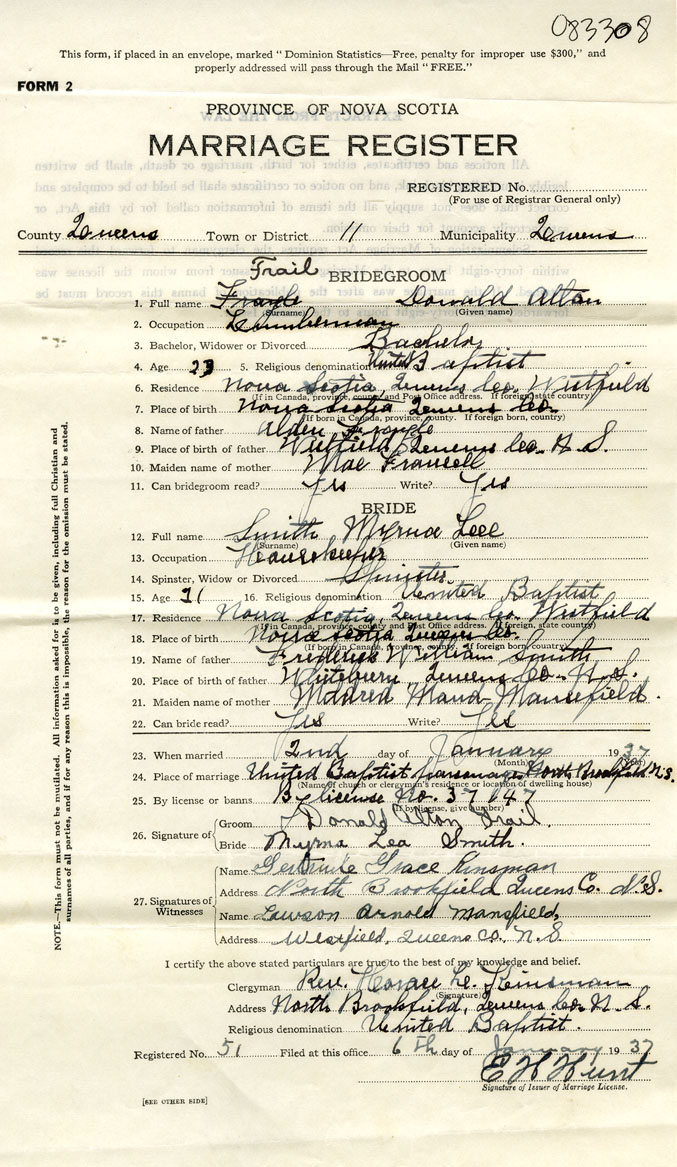 083308
This form, if placed in an envelope, marked "Dominion Statistics—Free, penalty for improper use $300," and
properly addressed will pass through the Mail "FREE."
FORM 2
PROVINCE OF NOVA SCOTIA
MARRIAGE REGISTER
REGISTERED No.
(For use of Registrar General only)
County Queens Town or District 11 Municipality Queens
Trail
BRIDEGROOM
1. Full name Donald Alton
(Surname) (Given name)
2. Occupation Lumberman
3. Bachelor, Widower or Divorced Bachelor
4. Age 23 5. Religious denomination United Baptist
6. Residence Nova Scotia, Queens Co. Westfield
(If in Canada, province, county and Post Office address. If foreign, state country)
7. Place of birth Nova Scotia Queens Co.
(If born in Canada, province, county. If foreign born, country)
8. Name of father Alden
9. Place of birth of father Westfield, Queens Co. N.S.
10. Maiden name of mother Mae
11. Can bridegroom read? Yes Write? Yes
BRIDE
12. Full name Smith Myrna Lee
(Surname) (Given name)
13. Occupation Housekeeper
14. Spinster, Widow or Divorced Spinster
15. Age 21 16. Religious denomination United Baptist
17. Residence Nova Scotia, Queens Co. Westfield
(If in Canada, province, county and Post Office address. If foreign, state country)
18. Place of birth Nova Scotia Queens Co.
(If born in Canada, province, county. If foreign born, country)
19. Name of father Frederick William Smith
20. Place of birth of father Whiteburn, Queens Co. N.S.
21. Maiden name of mother Mildred Maud Mansefield.
22. Can bride read? Yes Write? Yes
23. When married 2nd day of January 1937
(Month) (Year)
24. Place of marriage United Baptist parsonage, North Brookfield N.S.
(Name of church or clergyman's residence or location of dwelling house)
25. By license or banns By license No. 37147
(If by license, give number)
26. Signature of Groom Donald Alton Trail
Bride Myrna Lea Smith.
27. Signatures of Witnesses
Name Gertrude Grace Kinsman
Address North Brookfield Queens Co. N.S.
Name Lawson Arnold Mansfield,
Address Westfield, Queens Co. N.S.
I certify the above stated particulars are true to the best of my knowledge and belief.
Clergyman Rev. Horace L. Kinsman
(Signature)
Address North Brookfield, Queens Co. N.S.
Religious denomination United Baptist.
Registered No. 51 Filed at this office 6th day of January 1937
E H Hunt
Signature of Issuer of Marriage License.
[SEE OTHER SIDE]
NOTE.—This form must not be mutilated. All information asked for is to be given, including full Christian and
surnames of all parties, and if for any reason this is impossible, the reason for the omission must be stated.